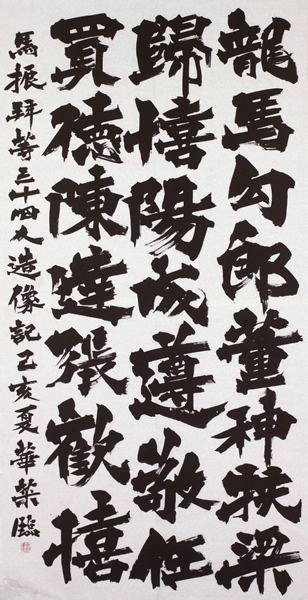 龍馬勾郎董神扶梁
歸憘陽成遵敬任
買德陳達張歡憘
馬振拜等三十四人造像記乙亥夏華臨